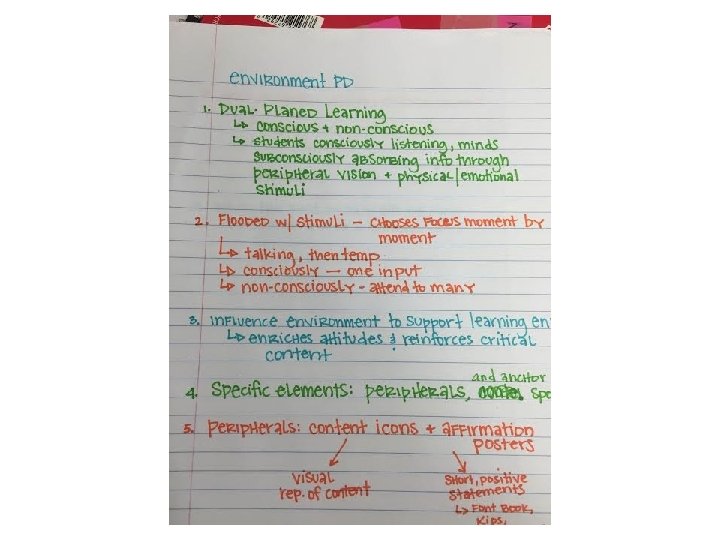 environment PD
1. Dual-Planed Learning
↳ conscious + non-conscious
↳ students consciously listening, minds
subconsciously absorbing info through
peripheral vision + physical/emotional
stimuli
2. Flooded w/ stimuli – chooses focus moment by
moment
↳ talking, then temp
↳ consciously – one input
↳ non-consciously - attend to many
3. Influence environment to support learning en
↳ enriches attitudes & reinforces critical
content
and anchor
4. Specific elements: peripherals, spe
5. Peripherals: content icons + affirmation
posters
visual
rep. of content
short, positive
statements
↳ Font Book,
Kids,